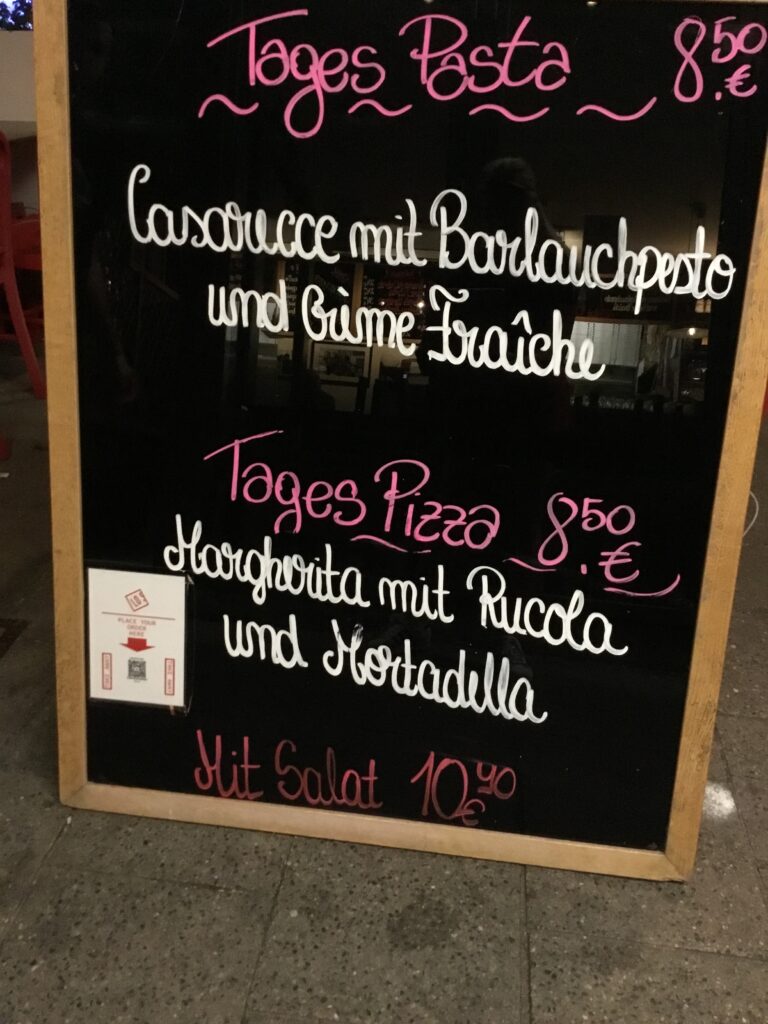 Tages Pasta 8.50 €
Casarecce mit Barlauchpesto
und Crème Fraîche
Tages Pizza 8.50 €
Margherita mit Rucola
und Mortadella
PLACE YOUR
ORDER
HERE
Mit Salat 10.90 €